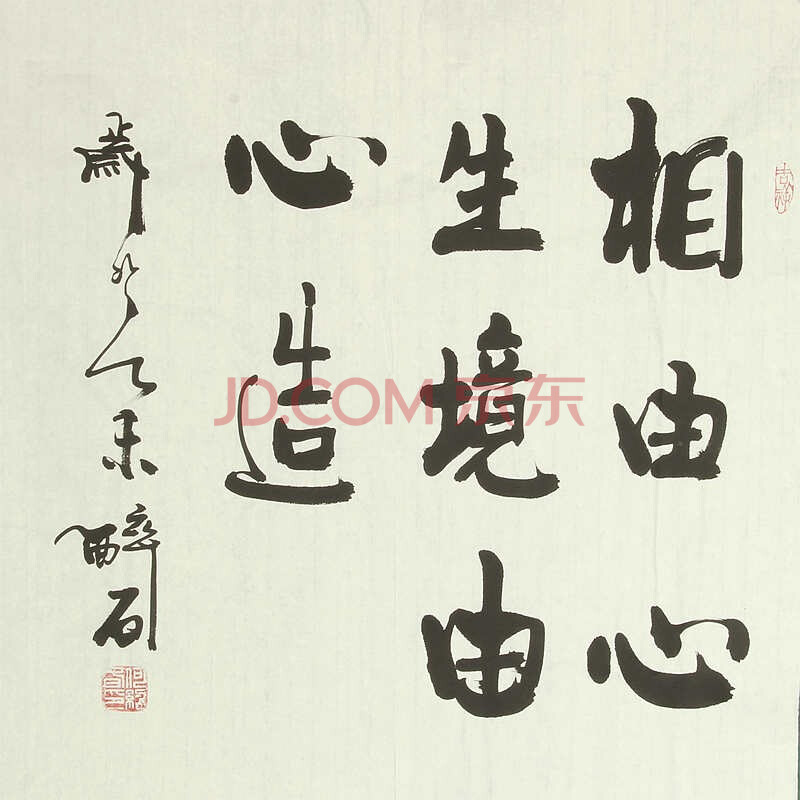 相由心
生境由
心造
歲次乙未醉石
JD.COM 京东